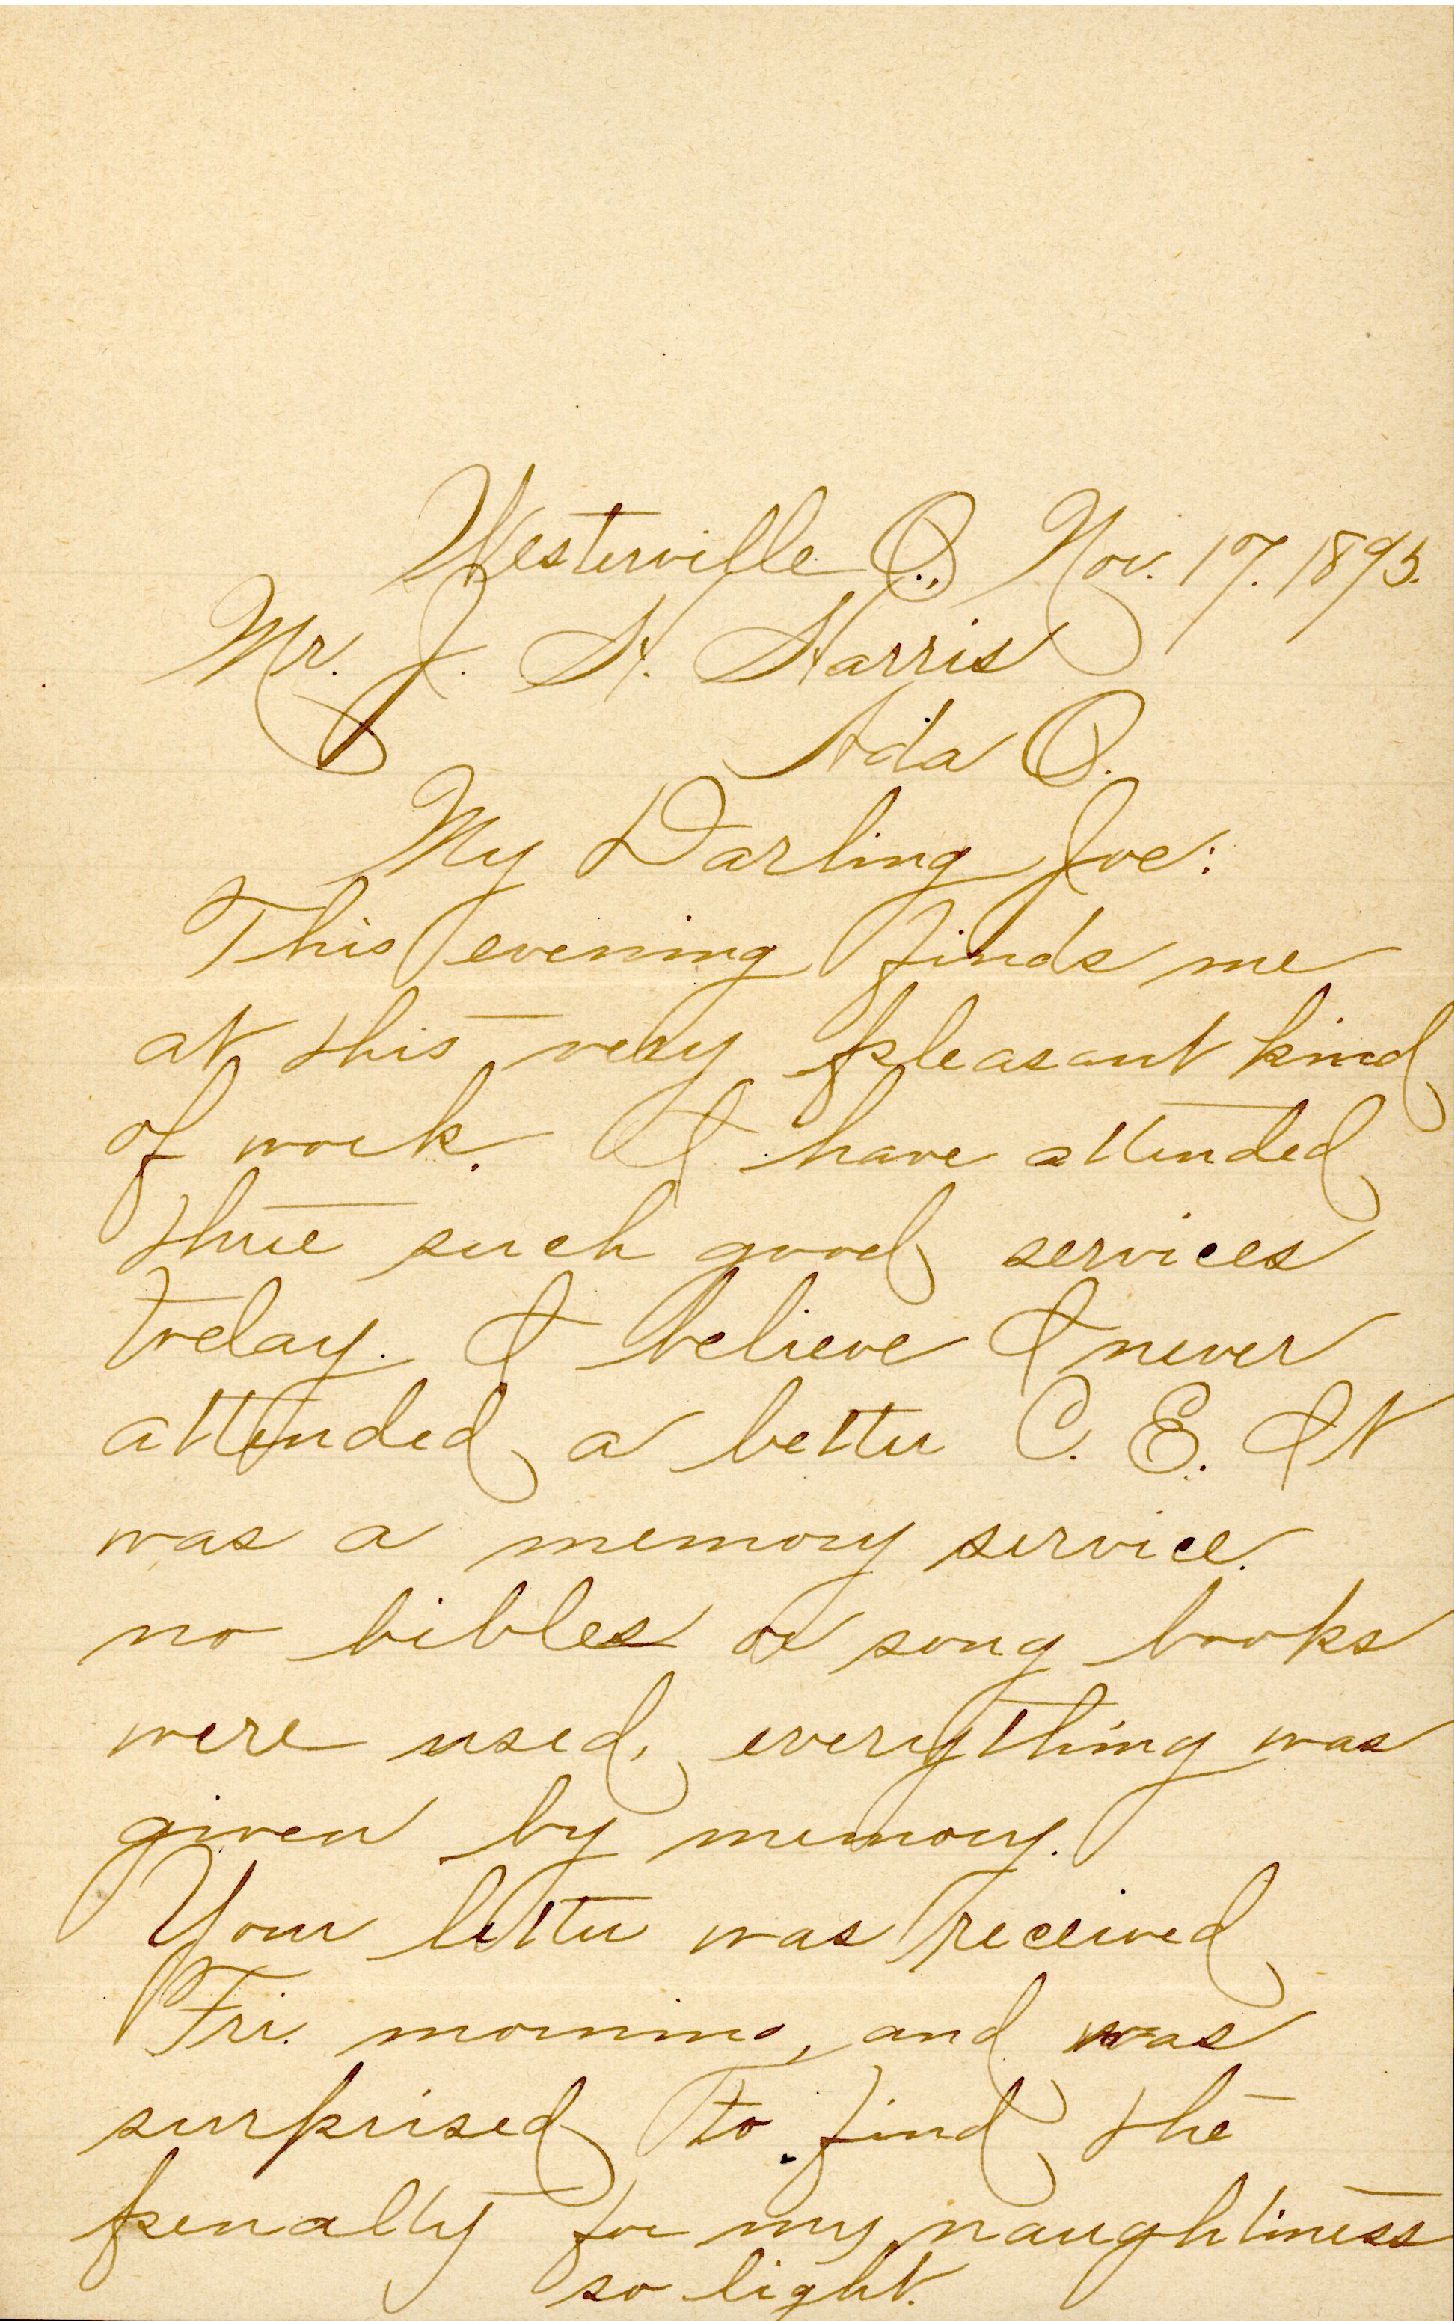 Westerville O., Nov. 17. 1895.
Mr. J. H. Harris
Ada O.
My Darling Joe:
This evening finds me
at this very pleasant kind
of work. I have attended
three such good services
today. I believe I never
attended a better C. E. It
was a memory service.
no bibles or song books
were used, everything was
given by memory.
Your letter was received
Fri. morning, and was
surprised to find the
penalty for my naughtiness
so light.